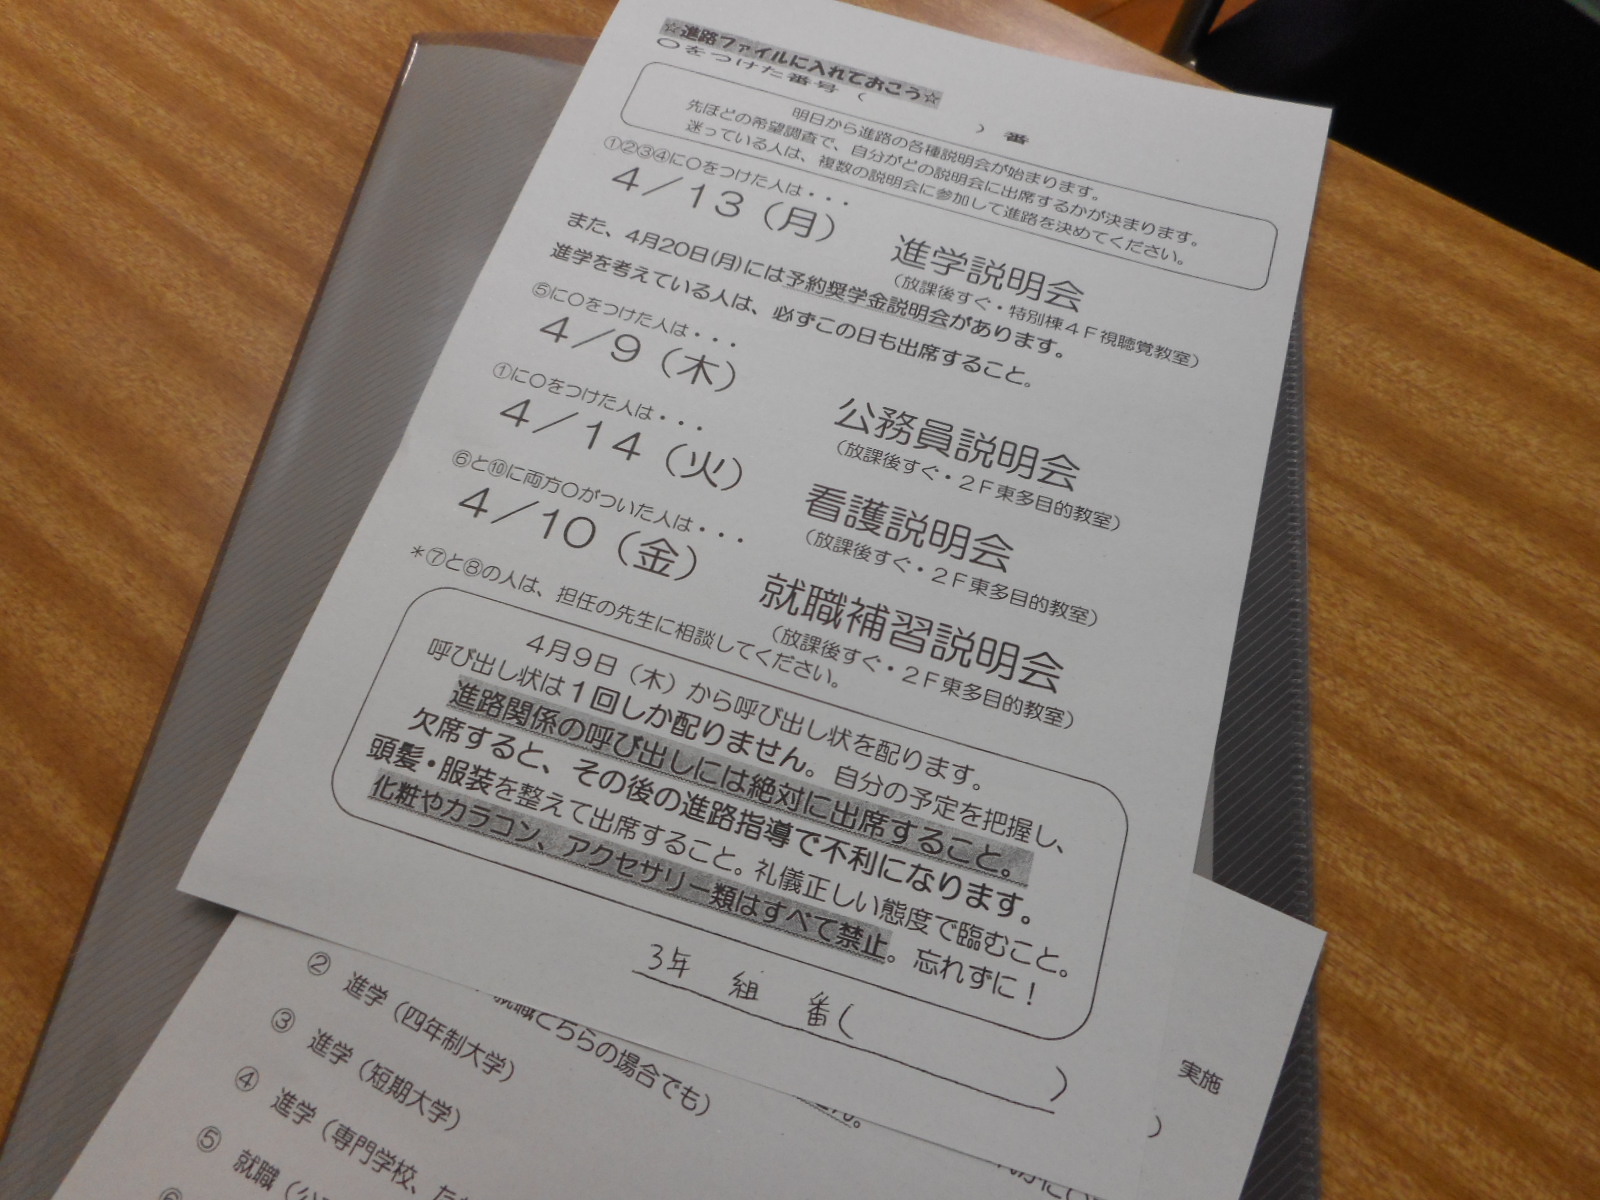 ☆進路ファイルに入れておこう☆
○をつけた番号（　　　　　）番
明日から進路の各種説明会が始まります。
先ほどの希望調査で、自分がどの説明会に出席するかが決まります。
迷っている人は、複数の説明会に参加して進路を決めてください。
①②③④に○をつけた人は・・・
4／13（月）　進学説明会
（放課後すぐ・特別棟４Ｆ視聴覚教室）
また、4月20日(月)には予約奨学金説明会があります。
進学を考えている人は、必ずこの日も出席すること。
⑤に○をつけた人は・・・
4／9（木）　公務員説明会
（放課後すぐ・２Ｆ東多目的教室）
①に○をつけた人は・・・
4／14（火）　看護説明会
（放課後すぐ・２Ｆ東多目的教室）
⑥と⑩に両方○がついた人は・・・
4／10（金）　就職補習説明会
（放課後すぐ・２Ｆ東多目的教室）
＊⑦と⑧の人は、担任の先生に相談してください。
４月９日（木）から呼び出し状を配ります。
呼び出し状は１回しか配りません。自分の予定を把握し、
進路関係の呼び出しには絶対に出席すること。
欠席すると、その後の進路指導で不利になります。
頭髪・服装を整えて出席すること。礼儀正しい態度で臨むこと。
化粧やカラコン、アクセサリー類はすべて禁止。忘れずに！
3年　組　番(　　　　　)
就職どちらの場合でも）
② 進学（四年制大学）
③ 進学（短期大学）
④ 進学（専門学校、
⑤ 就職（公
実施
）